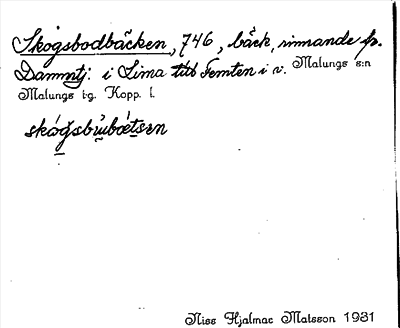 Skogsbodbäcken, 746, bäck, rinnande fr.
i Lima till Femten i v. Malungs s:n
Malungs t-g. Kopp. l.
Niss Hjalmar Matsson 1931